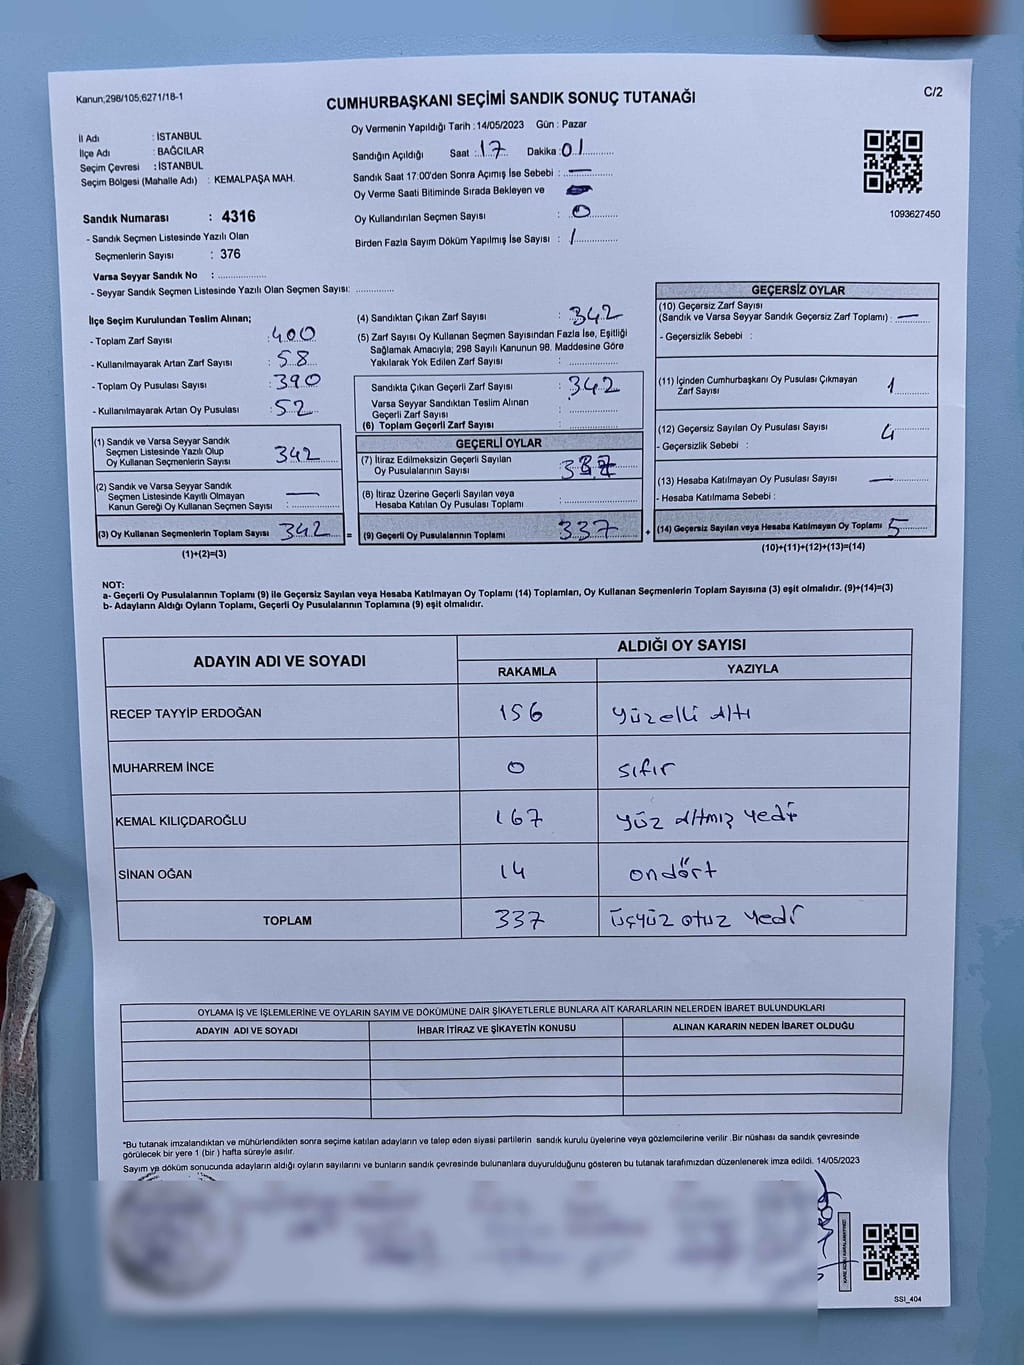 Kanun;298/105;6271/18-1
C/2
CUMHURBAŞKANI SEÇİMİ SANDIK SONUÇ TUTANAĞI
İl Adı : İSTANBUL
İlçe Adı : BAĞCILAR
Seçim Çevresi : İSTANBUL
Seçim Bölgesi (Mahalle Adı) : KEMALPAŞA MAH.
Sandık Numarası : 4316
- Sandık Seçmen Listesinde Yazılı Olan
Seçmenlerin Sayısı : 376
Varsa Seyyar Sandık No : ..................
- Seyyar Sandık Seçmen Listesinde Yazılı Olan Seçmen Sayısı: ..............
Oy Vermenin Yapıldığı Tarih :14/05/2023 Gün : Pazar
Sandığın Açıldığı Saat : 17 Dakika : 01
Sandık Saat 17:00'den Sonra Açımış İse Sebebi : —
Oy Verme Saati Bitiminde Sırada Bekleyen ve
Oy Kullandırılan Seçmen Sayısı : 0
Birden Fazla Sayım Döküm Yapılmış İse Sayısı : 1
1093627450
İlçe Seçim Kurulundan Teslim Alınan;
- Toplam Zarf Sayısı : 400
- Kullanılmayarak Artan Zarf Sayısı : 58
- Toplam Oy Pusulası Sayısı : 390
- Kullanılmayarak Artan Oy Pusulası : 52
(1) Sandık ve Varsa Seyyar Sandık
Seçmen Listesinde Yazılı Olup
Oy Kullanan Seçmenlerin Sayısı : 342
(2) Sandık ve Varsa Seyyar Sandık
Seçmen Listesinde Kayıtlı Olmayan
Kanun Gereği Oy Kullanan Seçmen Sayısı : —
(3) Oy Kullanan Seçmenlerin Toplam Sayısı : 342 =
(1)+(2)=(3)
(4) Sandıktan Çıkan Zarf Sayısı : 342
(5) Zarf Sayısı Oy Kullanan Seçmen Sayısından Fazla İse, Eşitliği
Sağlamak Amacıyla; 298 Sayılı Kanunun 98. Maddesine Göre
Yakılarak Yok Edilen Zarf Sayısı : ..............
Sandıkta Çıkan Geçerli Zarf Sayısı : 342
Varsa Seyyar Sandıktan Teslim Alınan
Geçerli Zarf Sayısı : ..............
(6) Toplam Geçerli Zarf Sayısı : ..............
GEÇERLİ OYLAR
(7) İtiraz Edilmeksizin Geçerli Sayılan
Oy Pusulalarının Sayısı : 337
(8) İtiraz Üzerine Geçerli Sayılan veya
Hesaba Katılan Oy Pusulası Toplamı : ..............
(9) Geçerli Oy Pusulalarının Toplamı : 337 +
GEÇERSİZ OYLAR
(10) Geçersiz Zarf Sayısı
(Sandık ve Varsa Seyyar Sandık Geçersiz Zarf Toplamı) : —
- Geçersizlik Sebebi :
(11) İçinden Cumhurbaşkanı Oy Pusulası Çıkmayan
Zarf Sayısı 1
(12) Geçersiz Sayılan Oy Pusulası Sayısı 4
- Geçersizlik Sebebi :
(13) Hesaba Katılmayan Oy Pusulası Sayısı —
- Hesaba Katılmama Sebebi :
(14) Geçersiz Sayılan veya Hesaba Katılmayan Oy Toplamı 5
(10)+(11)+(12)+(13)=(14)
NOT:
a- Geçerli Oy Pusulalarının Toplamı (9) ile Geçersiz Sayılan veya Hesaba Katılmayan Oy Toplamı (14) Toplamları, Oy Kullanan Seçmenlerin Toplam Sayısına (3) eşit olmalıdır. (9)+(14)=(3)
b- Adayların Aldığı Oyların Toplamı, Geçerli Oy Pusulalarının Toplamına (9) eşit olmalıdır.
ADAYIN ADI VE SOYADI
ALDIĞI OY SAYISI
RAKAMLA YAZIYLA
RECEP TAYYİP ERDOĞAN 156 yüzelli altı
MUHARREM İNCE 0 sıfır
KEMAL KILIÇDAROĞLU 167 yüz altmış yedi
SİNAN OĞAN 14 ondört
TOPLAM 337 üçyüz otuz yedi
OYLAMA İŞ VE İŞLEMLERİNE VE OYLARIN SAYIM VE DÖKÜMÜNE DAİR ŞİKAYETLERLE BUNLARA AİT KARARLARIN NELERDEN İBARET BULUNDUKLARI
ADAYIN ADI VE SOYADI İHBAR İTİRAZ VE ŞİKAYETİN KONUSU ALINAN KARARIN NEDEN İBARET OLDUĞU
*Bu tutanak imzalandıktan ve mühürlendikten sonra seçime katılan adayların ve talep eden siyasi partilerin sandık kurulu üyelerine veya gözlemcilerine verilir .Bir nüshası da sandık çevresinde
görülecek bir yere 1 (bir ) hafta süreyle asılır.
Sayım ve döküm sonucunda adayların aldığı oyların sayılarını ve bunların sandık çevresinde bulunanlara duyurulduğunu gösteren bu tutanak tarafımızdan düzenlenerek imza edildi. 14/05/2023
SSI_404